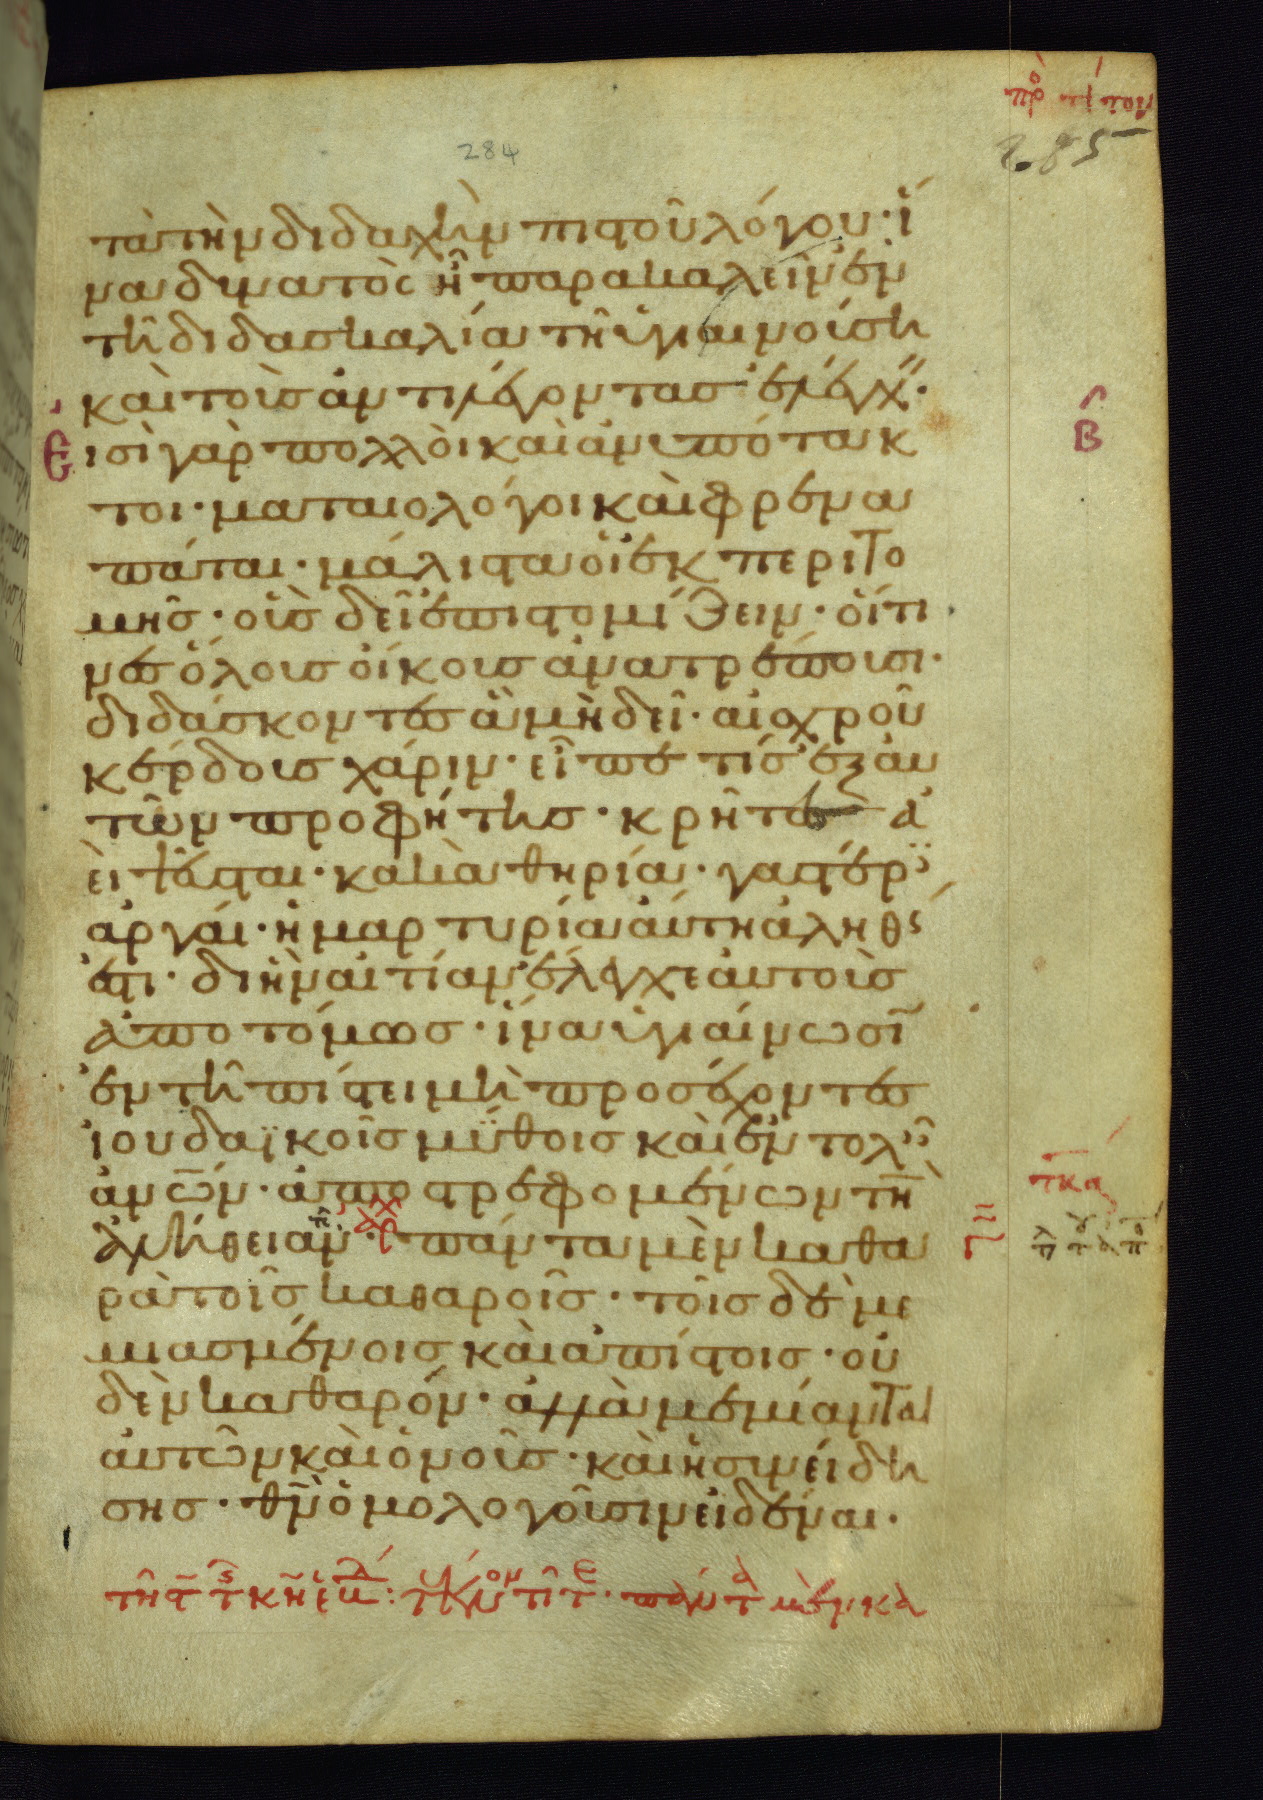 284
285
τὰ τὴν διδαχὴν πιστοῦ λόγου· ἵ
να δυνατὸς ἦ παρακαλεῖν ἐν
τῆ διδασκαλία τῆ ὑγιαινούσῃ
καὶ τοὺς ἀντιλέγοντας ἐλέγχ·
Εἰσὶ γὰρ πολλοὶ καὶ ἀνυπότακ
β
τοι· ματαιολόγοι καὶ φρενα
πάται· μάλιστα οἱ ἐκ περιτο
μῆς· οὓς δεῖ ἐπιστομίζειν· οἵτι
νες ὅλους οἴκους ἀνατρέπουσι·
διδάσκοντες ἃ μὴ δεῖ· αἰσχροῦ
κέρδους χάριν· εἶπέ τίς ἐξ αυ
τῶν προφήτης· κρῆτες ἀ
εὶ ψεῦσται· κακὰ θηρία· γαστέρς
ἀργαί· ἡ μαρτυρία αὕτη ἀληθς
ἐστι· δι ἣν αἰτίαν ἔλεγχε αὐτοὺς
ἀποτόμως· ἵνα ὑγιαίνωσι
ἐν τῆ πίστει μὴ προσέχοντες
ἰουδαϊκοῖς μύθοις καὶ ἐντολς
ἀνων· ἀποστρεφομένων τὴ
ἀλήθειαν· πάντα μὲν καθα
ρὰ τοῖς καθαροῖς· τοῖς δὲ με
μιασμένοις καὶ ἀπίστοις· οὐ
δὲν καθαρόν· ἀλλὰ μεμίανται
αὐτῶν καὶ ὁ νοῦς· καὶ ἡ συνείδη
σης· θν ὁμολογοῦσιν εἰδέναι·